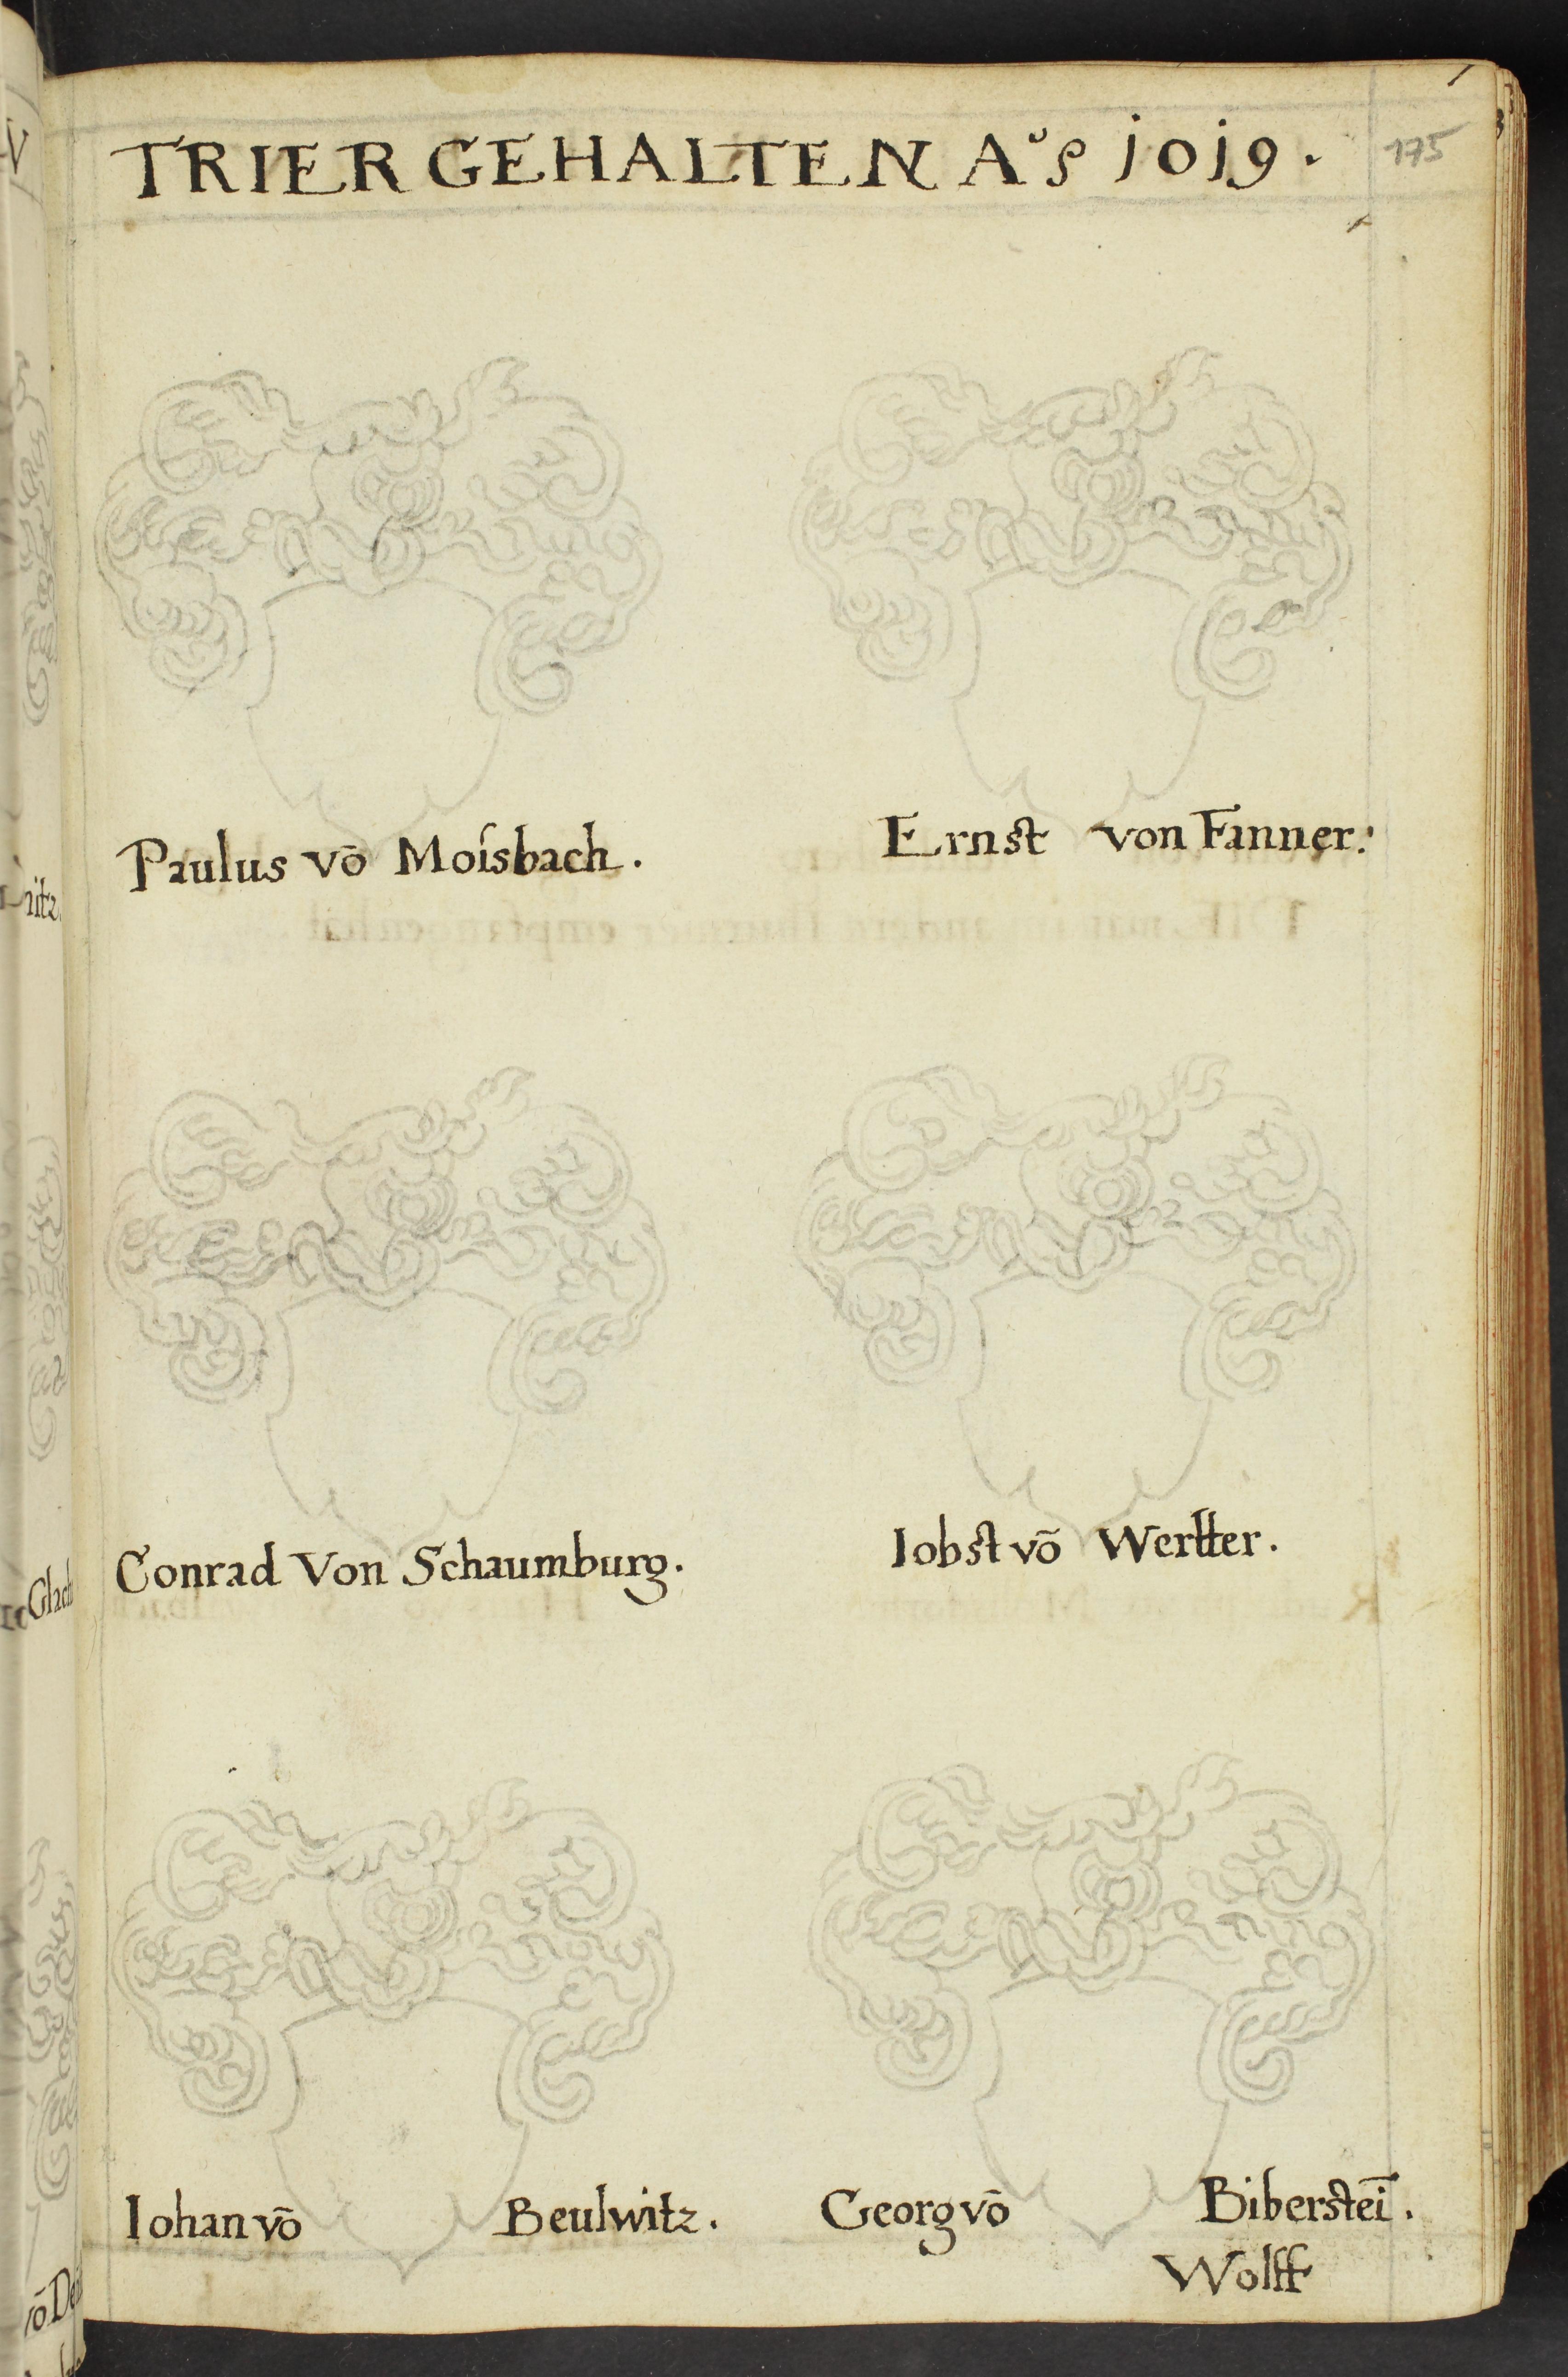 TRIER GEHALTEN Aoͤ 1019.
175
Paulus vō Moisbach.
Ernst von Fanner:
Conrad Von Schaumburg.
Iobst vō Wertter.
Iohan vō Beulwitz.
Georg vō Bibersteī.
Wolff